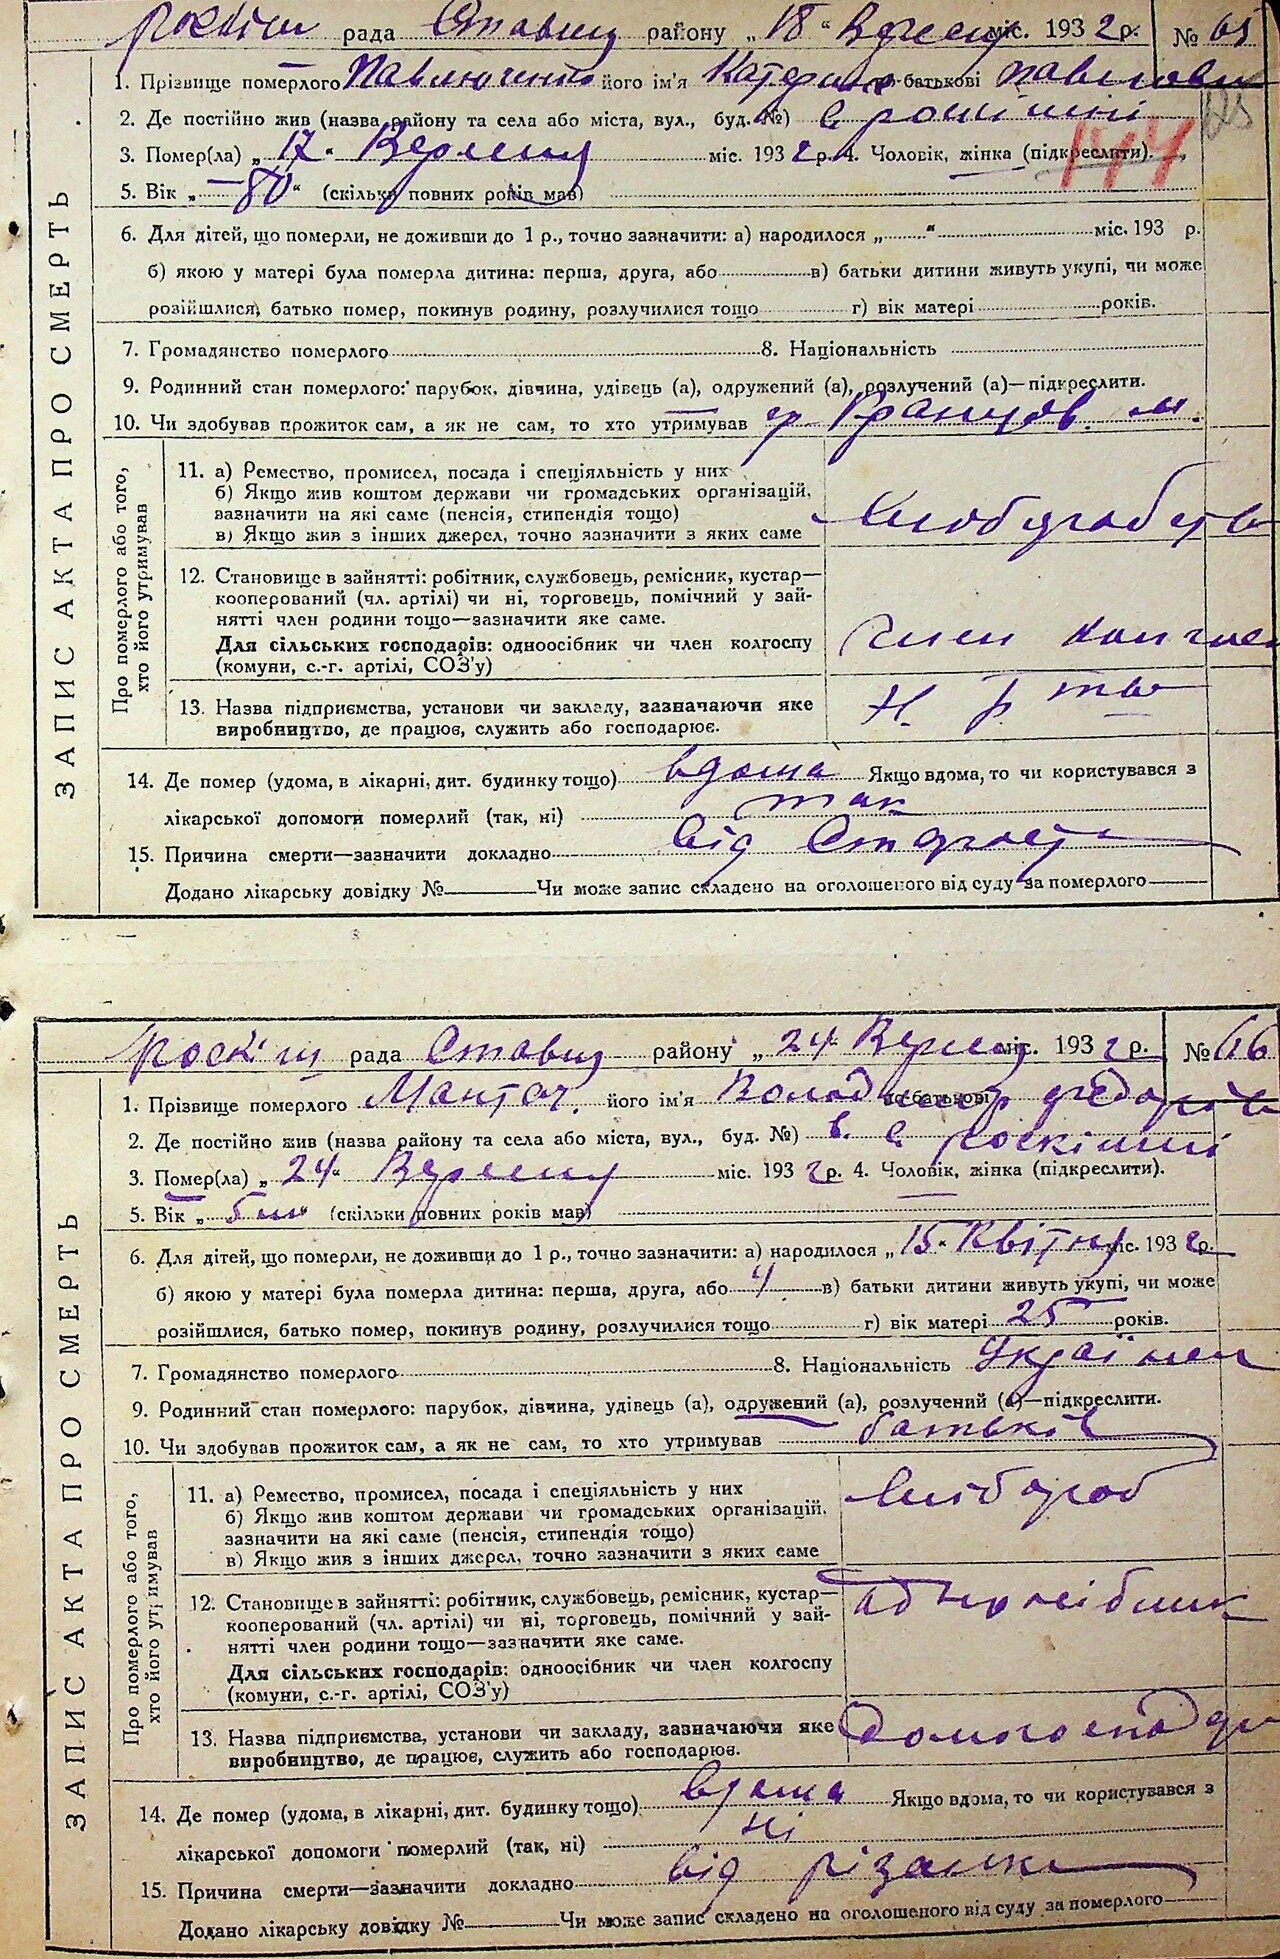 Роскіш рада Ставищ району „18“ Вересня міс. 1932 р. № 65
1. Прізвище померлого Павлюченко його ім'я Катерина по-батькові Павлови
2. Де постійно жив (назва району та села або міста, вул., буд. №) с роскішні
3. Помер(ла) „17“ Вересня міс. 1932 р. 4. Чоловік, жінка (підкреслити).
144
5. Вік „80“ (скільки повних років мав)
6. Для дітей, що померли, не доживши до 1 р., точно зазначити: а) народилося „ “ міс. 193 р.
б) якою у матері була померла дитина: перша, друга, або в) батьки дитини живуть укупі, чи може
розійшлися, батько помер, покинув родину, розлучилися тощо г) вік матері років.
7. Громадянство померлого 8. Національність
9. Родинний стан померлого: парубок, дівчина, удівець (а), одружений (а), розлучений (а)—підкреслити.
10. Чи здобував прожиток сам, а як не сам, то хто утримував
ЗАПИС АКТА ПРО СМЕРТЬ
Про померлого або того,
хто його утримував
11. а) Ремество, промисел, посада і спеціяльність у них
б) Якщо жив коштом держави чи громадських організацій,
зазначити на які саме (пенсія, стипендія тощо)
в) Якщо жив з інших джерел, точно зазначити з яких саме
хлібороб
12. Становище в зайнятті: робітник, службовець, ремісник, кустар—
кооперований (чл. артілі) чи ні, торговець, помічний у зай-
нятті член родини тощо—зазначити яке саме.
Для сільських господарів: одноосібник чи член колгоспу
(комуни, с.-г. артілі, СОЗ'у)
член колгосп
13. Назва підприємства, установи чи закладу, зазначаючи яке
виробництво, де працює, служить або господарює.
14. Де помер (удома, в лікарні, дит. будинку тощо) вдома Якщо вдома, то чи користувався з
лікарської допомоги померлий (так, ні) так
15. Причина смерти—зазначити докладно від Старости
Додано лікарську довідку № Чи може запис складено на оголошеного від суду за померлого
Роскіш рада Ставищ району „24“ Вересня міс. 1932 р. № 66
1. Прізвище померлого Мантач його ім'я Володимер по-батькові Федоров
2. Де постійно жив (назва району та села або міста, вул., буд. №) в. с. роскішні
3. Помер(ла) „24“ Вересня міс. 1932 р. 4. Чоловік, жінка (підкреслити).
5. Вік „5 міс“ (скільки повних років мав)
6. Для дітей, що померли, не доживши до 1 р., точно зазначити: а) народилося „15“ Квітня міс. 1932 р.
б) якою у матері була померла дитина: перша, друга, або 4 в) батьки дитини живуть укупі, чи може
розійшлися, батько помер, покинув родину, розлучилися тощо г) вік матері 25 років.
7. Громадянство померлого 8. Національність Українец
9. Родинний стан померлого: парубок, дівчина, удівець (а), одружений (а), розлучений (а)—підкреслити.
10. Чи здобував прожиток сам, а як не сам, то хто утримував батьків
ЗАПИС АКТА ПРО СМЕРТЬ
Про померлого або того,
хто його утримував
11. а) Ремество, промисел, посада і спеціяльність у них
б) Якщо жив коштом держави чи громадських організацій,
зазначити на які саме (пенсія, стипендія тощо)
в) Якщо жив з інших джерел, точно зазначити з яких саме
хлібороб
12. Становище в зайнятті: робітник, службовець, ремісник, кустар—
кооперований (чл. артілі) чи ні, торговець, помічний у зай-
нятті член родини тощо—зазначити яке саме.
Для сільських господарів: одноосібник чи член колгоспу
(комуни, с.-г. артілі, СОЗ'у)
одноосібник
13. Назва підприємства, установи чи закладу, зазначаючи яке
виробництво, де працює, служить або господарює.
домогоспода
14. Де помер (удома, в лікарні, дит. будинку тощо) вдома Якщо вдома, то чи користувався з
лікарської допомоги померлий (так, ні) ні
15. Причина смерти—зазначити докладно від різачки
Додано лікарську довідку № Чи може запис складено на оголошеного від суду за померлого